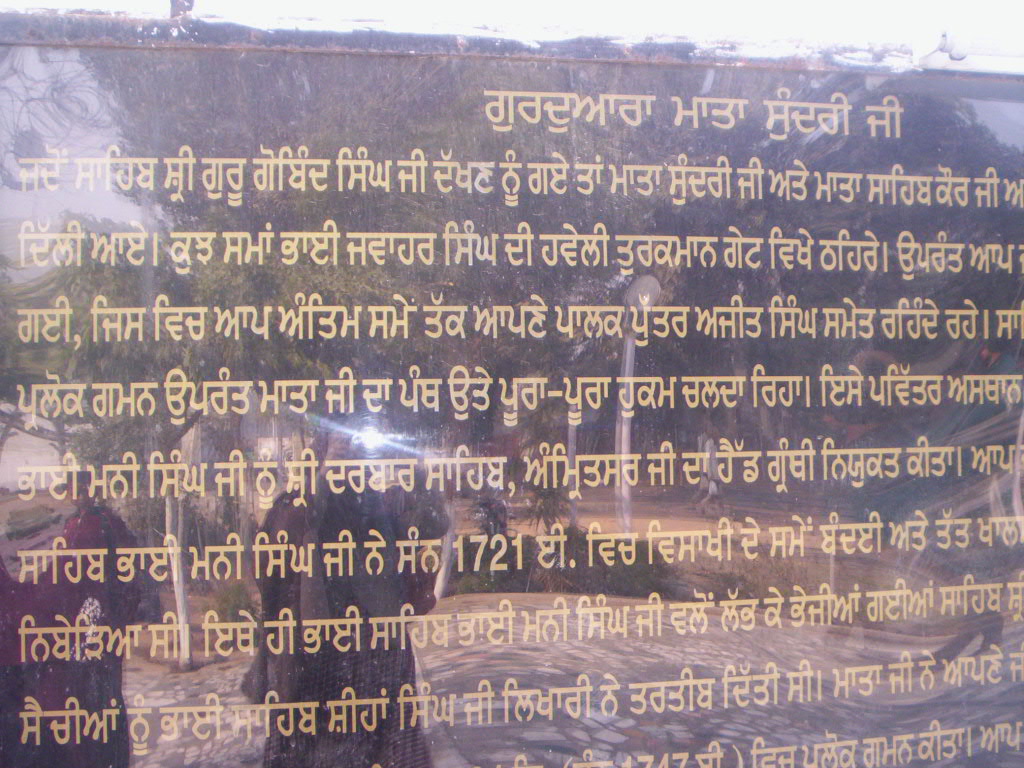 ਗੁਰਦੁਆਰਾ ਮਾਤਾ ਸੁੰਦਰੀ ਜੀ
ਜਦੋਂ ਸਾਹਿਬ ਸ਼੍ਰੀ ਗੁਰੂ ਗੋਬਿੰਦ ਸਿੰਘ ਜੀ ਦੱਖਣ ਨੂੰ ਗਏ ਤਾਂ ਮਾਤਾ ਸੁੰਦਰੀ ਜੀ ਅਤੇ ਮਾਤਾ ਸਾਹਿਬ ਕੌਰ ਜੀ
ਦਿੱਲੀ ਆਏ। ਕੁਝ ਸਮਾਂ ਭਾਈ ਜਵਾਹਰ ਸਿੰਘ ਦੀ ਹਵੇਲੀ ਤੁਰਕਮਾਨ ਗੇਟ ਵਿਖੇ ਠਹਿਰੇ। ਉਪਰੰਤ ਆਪ
ਗਈ, ਜਿਸ ਵਿਚ ਆਪ ਅੰਤਿਮ ਸਮੇਂ ਤੱਕ ਆਪਣੇ ਪਾਲਕ ਪੁੱਤਰ ਅਜੀਤ ਸਿੰਘ ਸਮੇਤ ਰਹਿੰਦੇ ਰਹੇ।
ਪ੍ਰਲੋਕ ਗਮਨ ਉਪਰੰਤ ਮਾਤਾ ਜੀ ਦਾ ਪੰਥ ਉਤੇ ਪੂਰਾ-ਪੂਰਾ ਹੁਕਮ ਚਲਦਾ ਰਿਹਾ। ਇਸੇ ਪਵਿੱਤਰ ਅਸਥਾਨ
ਭਾਈ ਮਨੀ ਸਿੰਘ ਜੀ ਨੂੰ ਸ਼੍ਰੀ ਦਰਬਾਰ ਸਾਹਿਬ, ਅੰਮ੍ਰਿਤਸਰ ਜੀ ਦਾ ਹੈੱਡ ਗ੍ਰੰਥੀ ਨਿਯੁਕਤ ਕੀਤਾ। ਆਪ
ਸਾਹਿਬ ਭਾਈ ਮਨੀ ਸਿੰਘ ਜੀ ਨੇ ਸੰਨ 1721 ਈ. ਵਿਚ ਵਿਸਾਖੀ ਦੇ ਸਮੇਂ ਬੰਦਈ ਅਤੇ ਤੱਤ
ਨਿਬੇੜਿਆ ਸੀ। ਇਥੇ ਹੀ ਭਾਈ ਸਾਹਿਬ ਭਾਈ ਮਨੀ ਸਿੰਘ ਜੀ ਵਲੋਂ ਲੱਭ ਕੇ ਭੇਜੀਆਂ ਗਈਆਂ ਸਾਹਿਬ
ਸੈਚੀਆਂ ਨੂੰ ਭਾਈ ਸਾਹਿਬ ਸ਼ੀਹਾਂ ਸਿੰਘ ਜੀ ਲਿਖਾਰੀ ਨੇ ਤਰਤੀਬ ਦਿੱਤੀ ਸੀ। ਮਾਤਾ ਜੀ ਨੇ ਆਪਣੇ
1747 ਈ.) ਵਿਚ ਪ੍ਰਲੋਕ ਗਮਨ ਕੀਤਾ। ਆਪ